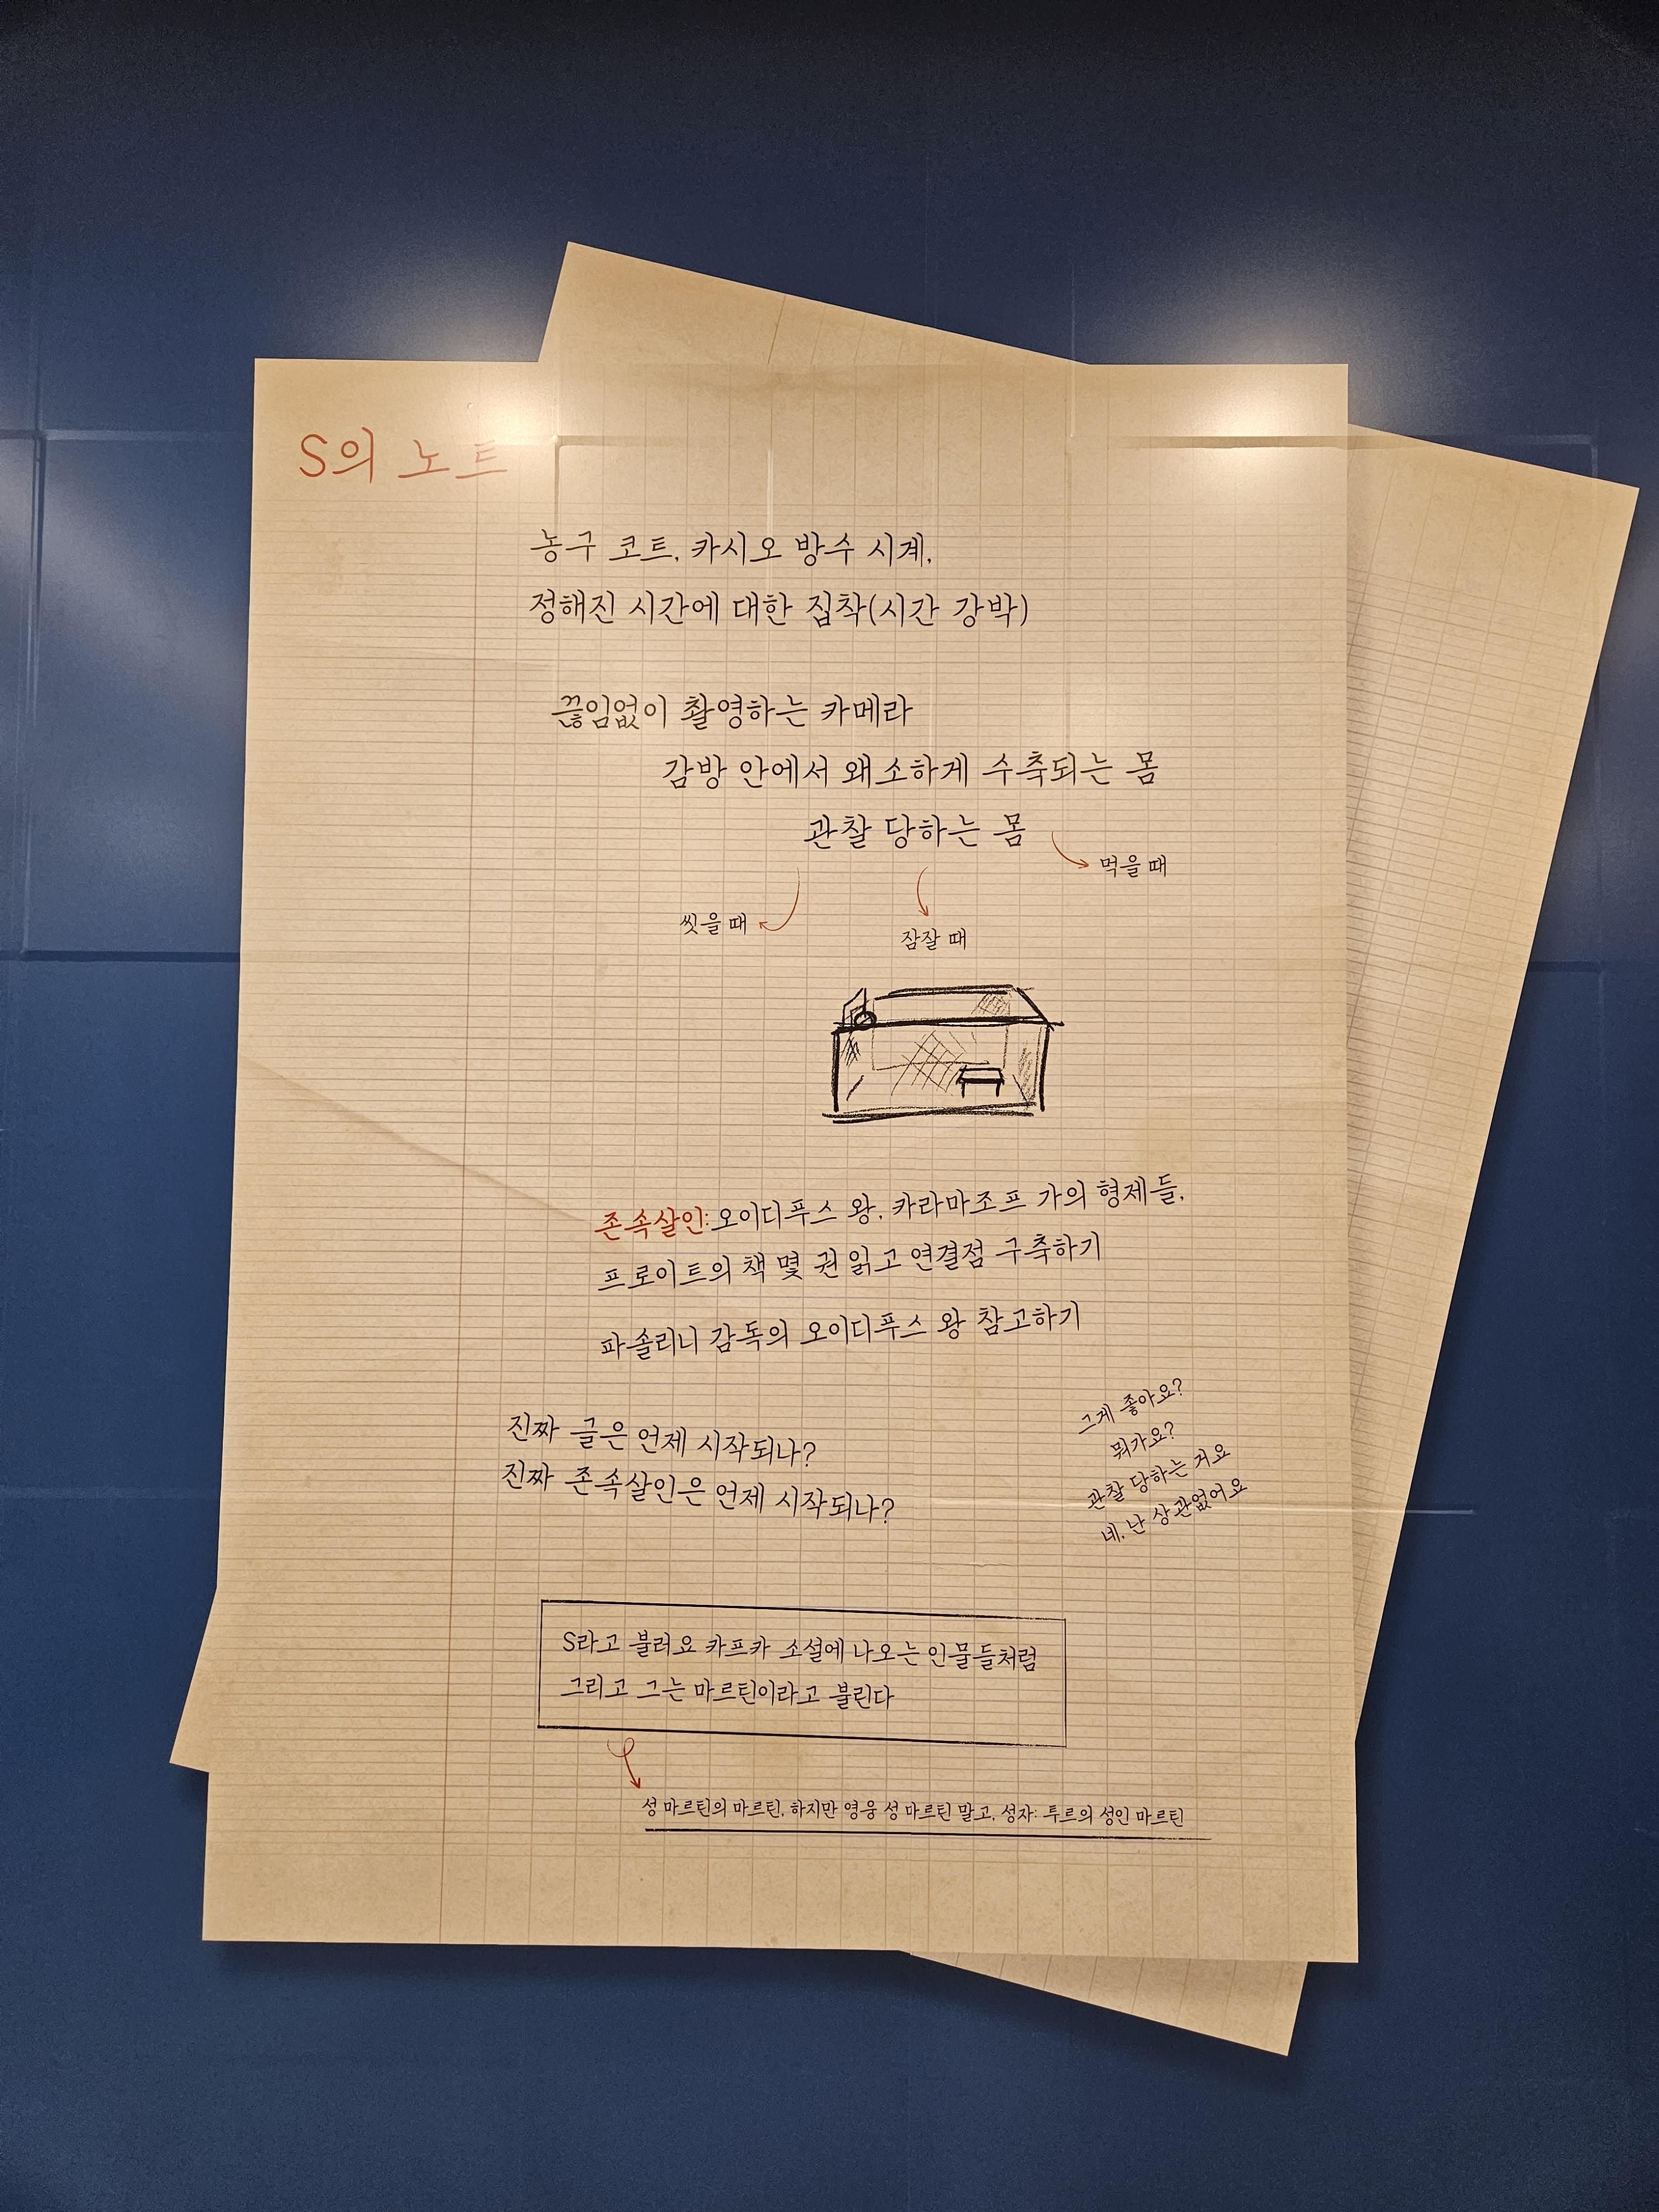 S의 노트
농구 코트, 카시오 방수 시계,
정해진 시간에 대한 집착(시간 강박)
끊임없이 촬영하는 카메라
감방 안에서 왜소하게 수축되는 몸
관찰 당하는 몸
먹을 때
씻을 때
잠잘 때
존속살인: 오이디푸스 왕, 카라마조프 가의 형제들,
프로이트의 책 몇 권 읽고 연결점 구축하기
파솔리니 감독의 오이디푸스 왕 참고하기
진짜 글은 언제 시작되나?
진짜 존속살인은 언제 시작되나?
그게 좋아요?
뭐가요?
관찰 당하는 거요
네, 난 상관없어요
S라고 불러요 카프카 소설에 나오는 인물들처럼
그리고 그는 마르틴이라고 불린다
성 마르틴의 마르틴, 하지만 영웅 성 마르틴 말고, 성자: 투르의 성인 마르틴